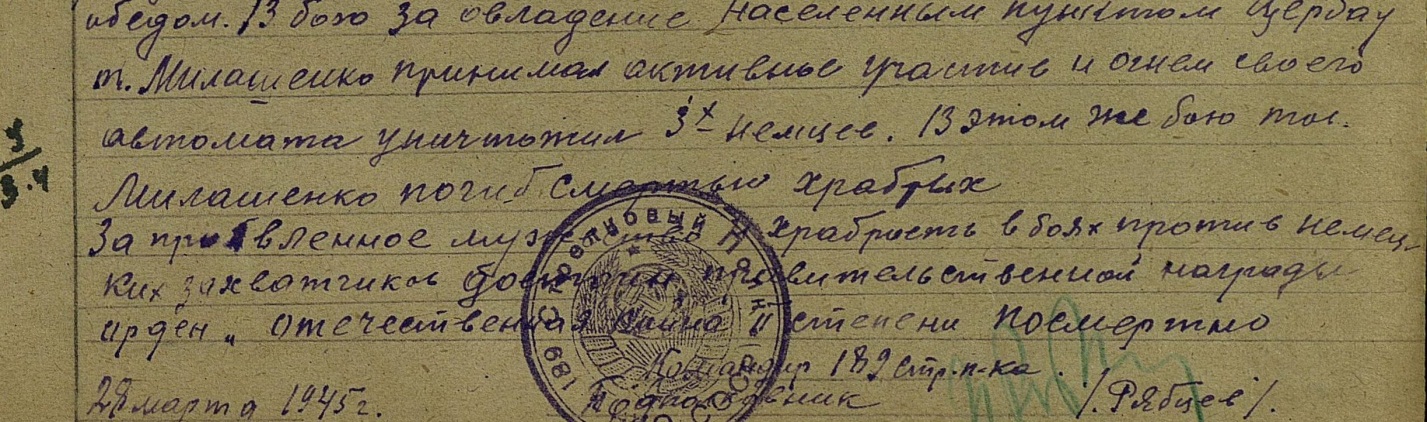 обедом. В бою за овладение населенным пунктом Цербау
т. Милашенко принимал активное участие и огнем своего
автомата уничтожил 3х немцев. В этом же бою тов.
Милашенко погиб смертью храбрых
За проявленное мужество и храбрость в боях против немец-
ких захватчиков достоин правительственной награды
орден „Отечественная война" II степени посмертно
Командир 189 стр. п-ка
28 марта 1945 г. Подполковник /Рябцев/.
Стрелковый
189
3
3.4